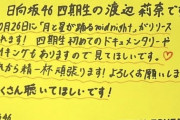 日向坂46 四期生の渡辺莉奈です
月26日に「月と星が踊るmidnight」がリリース
れます! 四期生初めてのドキュメンタリーや
イキングもありますので見てほしいです。♡
れから精一杯頑張ります!よろしくお願いしま
くさん聴いてほしいです!